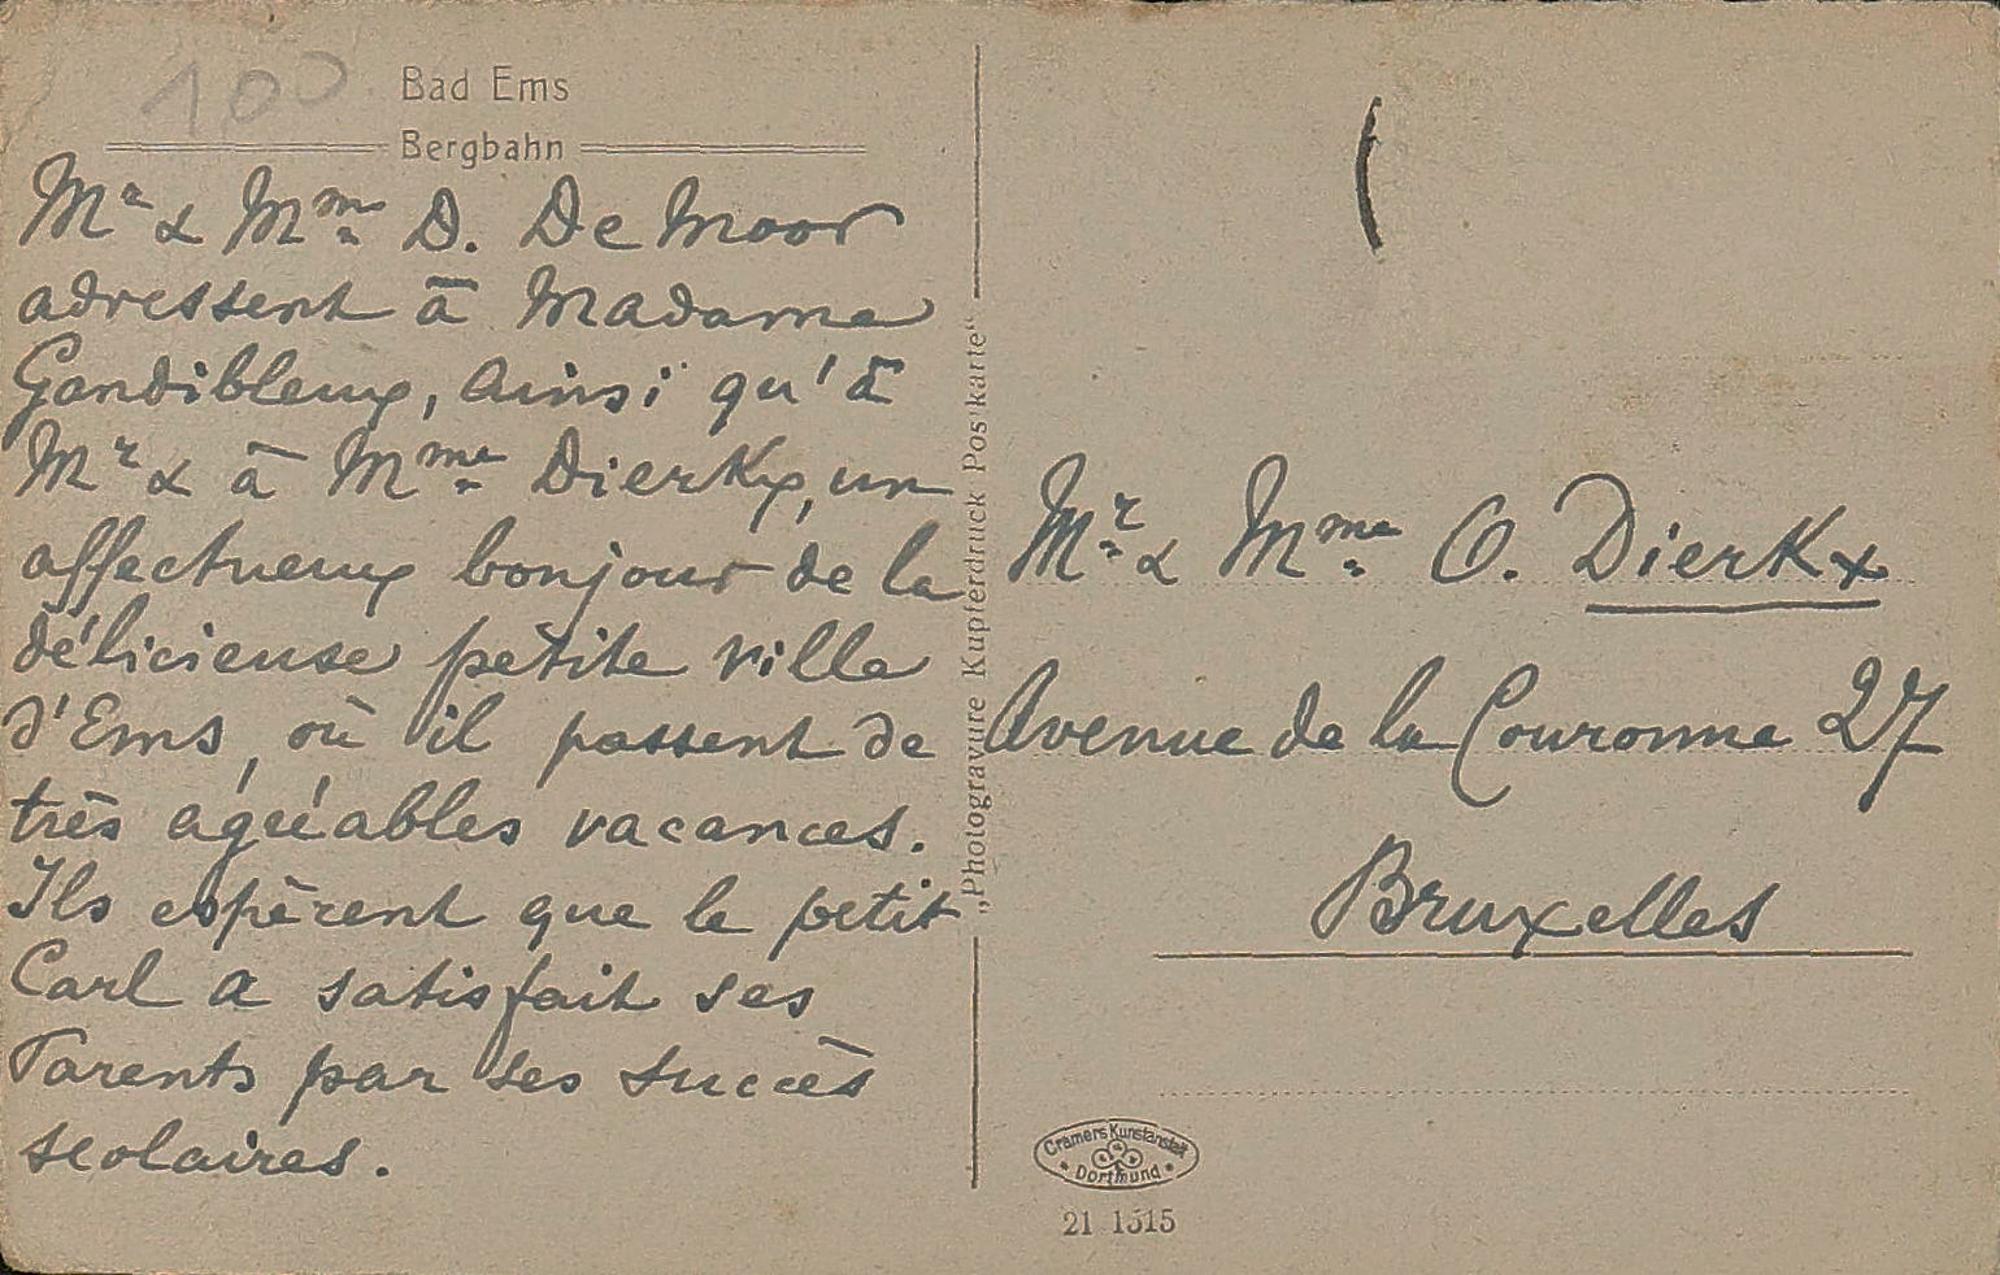 100
Bad Ems
Bergbahn
Mr & Mme D. De Moor
adressent à Madame
Gandibleux, ainsi qu'à
Mr & à Mme Dierkx, un
affectueux bonjour de la
délicieuse petite ville
d'Ems, où il passent de
très agréables vacances.
Ils espèrent que le petit
Carl a satisfait ses
Parents par ses succès
scolaires.
„Photogravure Kupferdruck Postkarte“
Mr & Mme O. Dierkx
Avenue de la Couronne 27
Bruxelles
Cramers Kunstanstalt
Dortmund
21 1515